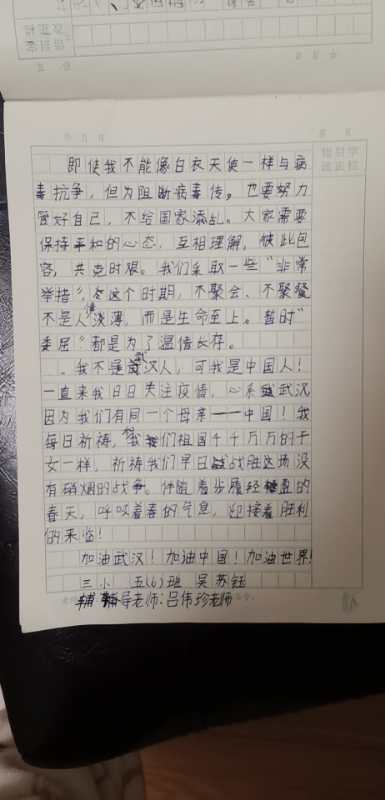 即使我不能像白衣天使一样与病
毒抗争，但为阻断病毒传，也要努力
管好自己，不给国家添乱。大家需要
保持平和的心态，互相理解，彼此包
容，共克时艰。我们采取一些“非常
举措”，在这个时期，不聚会、不聚餐
不是人情淡薄，而是生命至上。暂时“
委屈”都是为了温情长存。
。我不是武汉人，可我是中国人！
一直来我日日关注疫情，心系武汉
因为我们有同一个母亲——中国！我
每日祈祷，和我们祖国千千万万的子
女一样，祈祷我们早日战胜这场没
有硝烟的战争。伴随着步履轻盈的
春天，呼吸着春的气息，迎接着胜利
的来临！
加油武汉！加油中国！加油世界！
三小 五(6)班 吴苏钰
辅导老师：吕伟珍老师